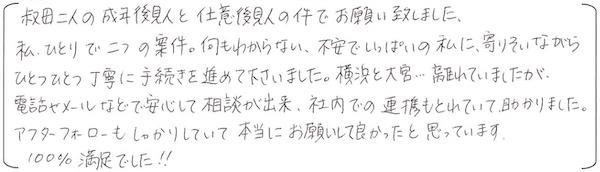 叔母二人の成年後見人と任意後見人の件でお願い致しました、
私、ひとりで二つの案件。何もわからない、不安でいっぱいの私に、寄りそいながら
ひとつひとつ丁寧に手続きを進めて下さいました。横浜と大宮…離れていましたが、
電話やメールなどで安心して相談が出来、社内での連携もとれていて助かりました。
アフターフォローもしっかりしていて本当にお願いして良かったと思っています。
100%満足でした!!